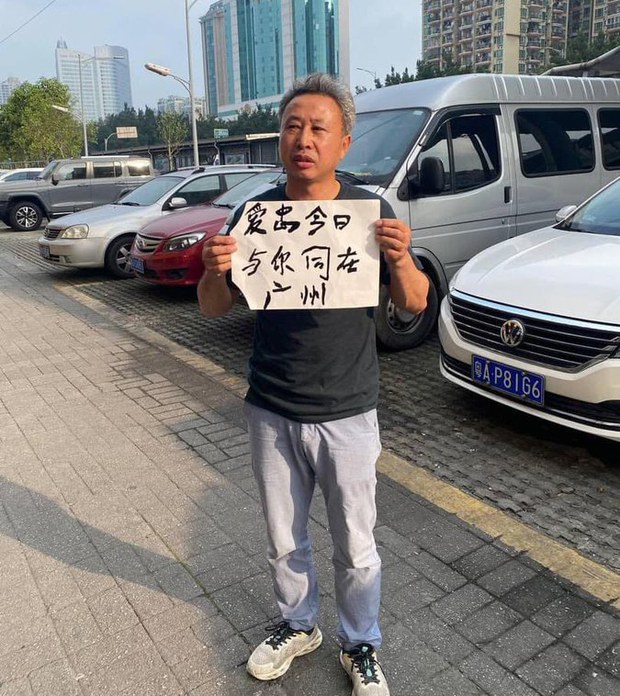 爱今日
与你同在
广州
粤A·P81G6